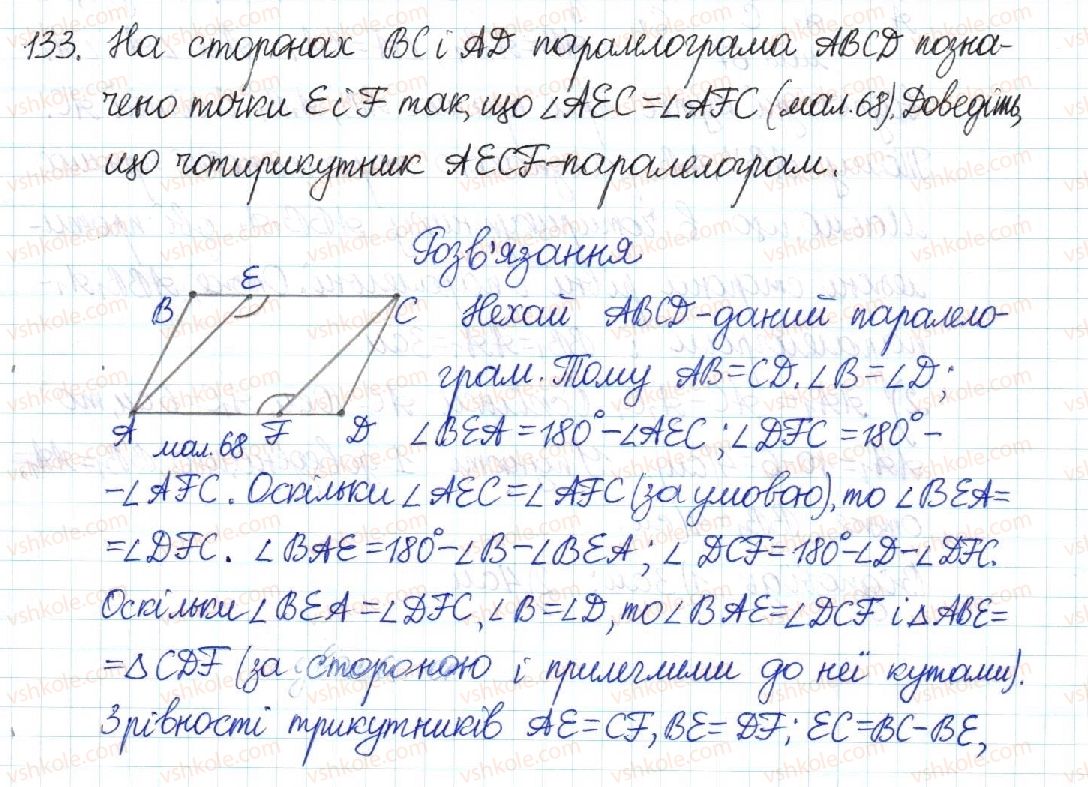 133. На сторонах BC і AD паралелограма ABCD позна-
чено точки E і F так, що ∠AEC=∠AFC (мал.68). Доведіть,
що чотирикутник AECF-паралелограм.
Розв'язання
E
B
C
Нехай ABCD-даний паралело-
грам. Тому AB=CD. ∠B=∠D;
A
мал.68
F
D
∠BEA=180°-∠AEC; ∠DFC=180°-
-∠AFC. Оскільки ∠AEC=∠AFC (за умовою), то ∠BEA=
=∠DFC. ∠BAE=180°-∠B-∠BEA; ∠DCF=180°-∠D-∠DFC.
Оскільки ∠BEA=∠DFC, ∠B=∠D, то ∠BAE=∠DCF і △ABE=
=△CDF (за стороною і прилеглими до неї кутами).
З рівності трикутників AE=CF, BE=DF; EC=BC-BE,
vshkole.com